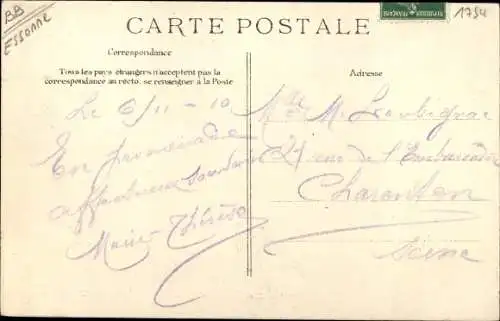 BB
ESSONNE
CARTE POSTALE
1784
Correspondance
Tous les pays étrangers n'acceptent pas la
correspondance au recto. se renseigner à la Poste
Adresse
Le 6/11 - 10
En promenade
affectueux souvenir
Marie Thérèse
M.
rue de l'Embarcadère
Charenton
Seine